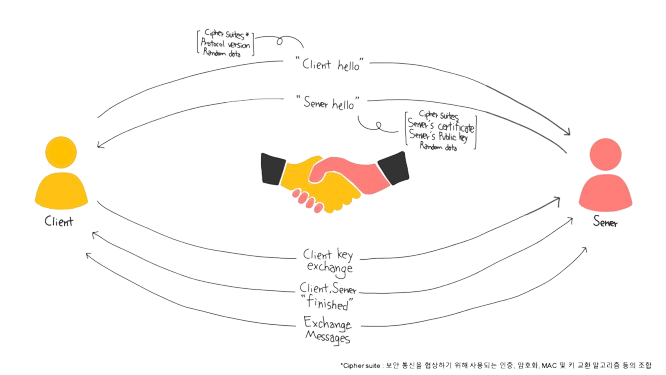 Cipher suites*
Protocol version
Random data
"Client hello"
"Server hello"
Cipher suites
Server's certificate
Server's Public key
Random data
Client
Server
Client key
exchange
Client, Server
"finished"
Exchange
Messages
*Cipher suite : 보안 통신을 협상하기 위해 사용되는 인증, 암호화, MAC 및 키 교환 알고리즘 등의 조합